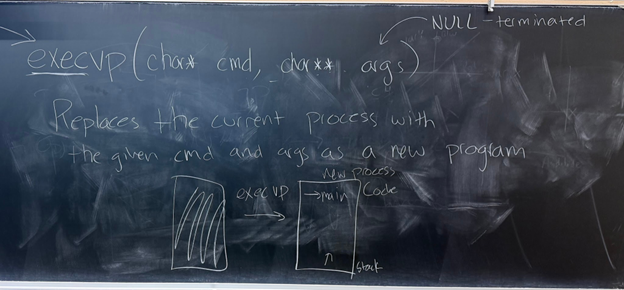 NULL-terminated
execvp(char* cmd, char** args)
Replaces the current process with
the given cmd and args as a new program
new process
execvp
→main
code
↑
stack